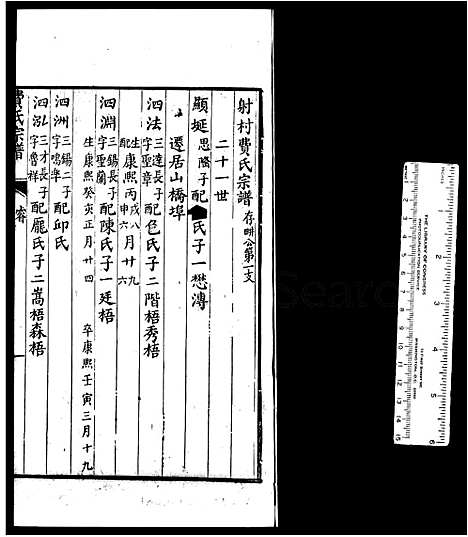 射村費氏宗譜 存畊公第二支
二十一世
顯埏 思隆子配 氏子一懋溥
遷居山橋埠
泗法 三達長子配邑氏子二階梧秀梧
字聖章
生康熙丙戌八月廿九
配生康熙丙申六月廿六
泗淵 三錫長子配陳氏子一廷梧
字聖蘭
生康熙癸亥正月廿四 卒康熙壬寅三月十九
泗洲 三錫二子配邱氏
字鳴臯
泗泓 三才長子配龐氏子二嵩梧森梧
字魯祥
費氏宗譜
THE LIBRARY OF CONGRESS
PHOTODUPLICATION SERVICE